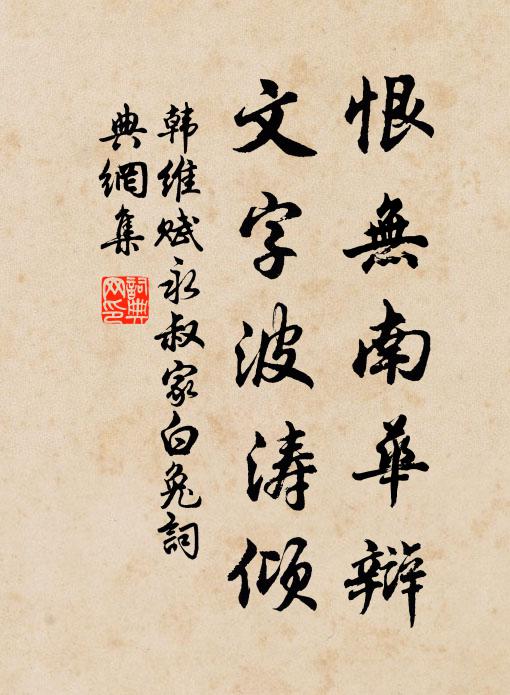 恨無南華辯
文字波濤傾
韩維赋永叔家白兔詞
典網集
詞典
网印